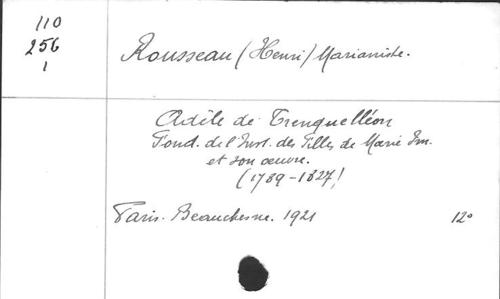 110
256
1
Rousseau (Henri) Marianiste.
Adèle de Trenquelléon
Fond. de l'Inst. des Filles de Marie Im.
et son œuvre.
(1789-1827)
Paris. Beauchesne. 1921 12°